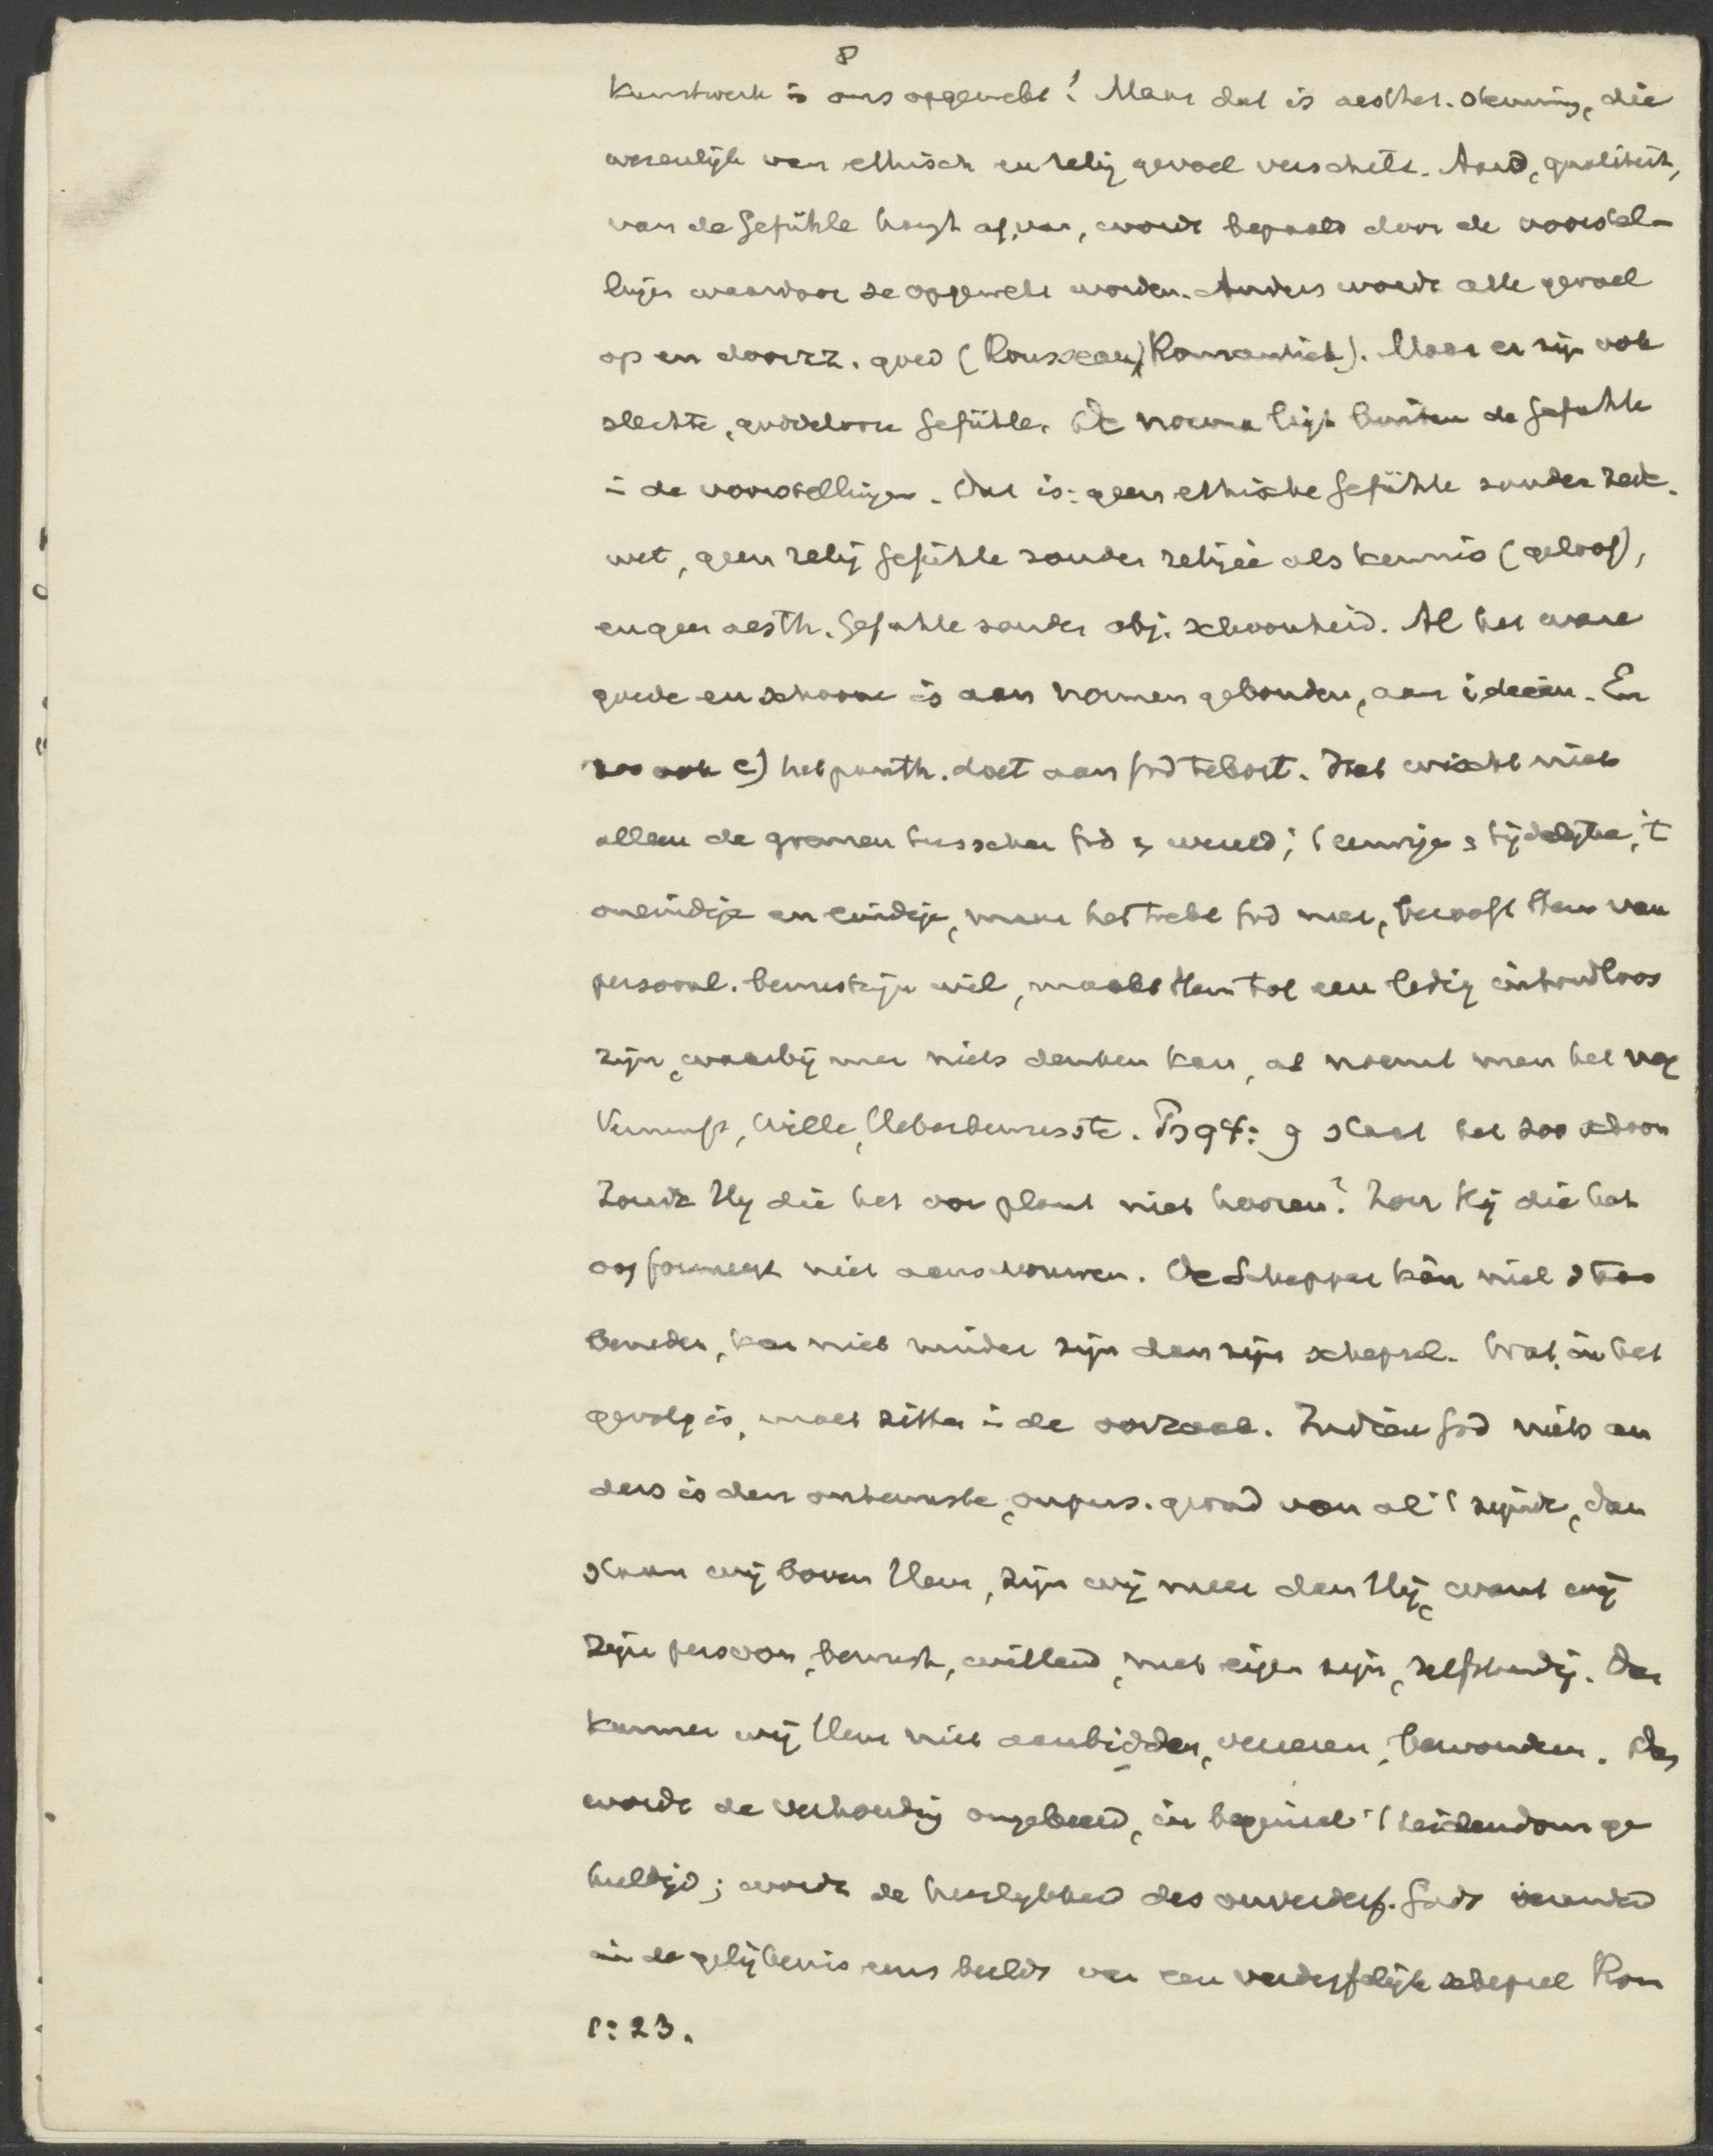 8
kunstwerk is ons opgewekt! Maar dat is aesthet. stemming, die
wezenlijk van ethisch en relig gevoel verschilt. Aard, qualiteit,
van de Gefühle hangt af van, wordt bepaald door de voorstel-
lingen waardoor ze opgewekt worden. Anders wordt alle gevoel
op en door z.z. goed (Rousseau, Romantiek). Maar er zijn ook
slechte, goddelooze Gefühle. De norma ligt buiten de Gefühle
in de voorstellingen. Dat is: geen ethische Gefühle zonder zed.
wet, geen relig Gefühle zonder religie als kennis (geloof),
en geen aesth. Gefühle zonder obj. schoonheid. Al het ware
goede en schoone is aan normen gebonden, aan ideeën. En
zoo ook c) het panth. doet aan God tekort. Het wischt niet
alleen de grenzen tusschen God & wereld; 't eeuwige & tijdelijke, 't
oneindige en eindige, maar het trekt God neer, berooft Hem van
persoonl. bewustzijn wil, maakt Hem tot een ledig inhoudloos
zijn, waarbij men niets denken kan, al noemt men het nog
Vernunft, Wille, Ueberbewusste. Ps 94:9 staat het zoo schoon
Zoude Hij die het oor plant niet hooren? Zou Hij die het
oog formeert niet aanschouwen. De Schepper kàn niet staan
beneden, kan niet minder zijn dan zijn schepsel. Wat in het
gevolg is, moet zitten in de oorzaak. Indien God niets an
ders is dan onbewuste, onpers. grond van al 't zijnde, dan
staan wij boven Hem, zijn wij meer dan Hij, want wij
zijn persoon, bewust, willend, met eigen zijn, zelfstandig. Dan
kunnen wij Hem niet aanbidden, vereeren, bewonderen. Dan
wordt de verhouding omgekeerd, in beginsel 't heidendom ge
huldigd; wordt de heerlijkheid des onverderf. Gods veranderd
in de gelijkenis eens beelds van een verderfelijk schepsel Rom
1:23.